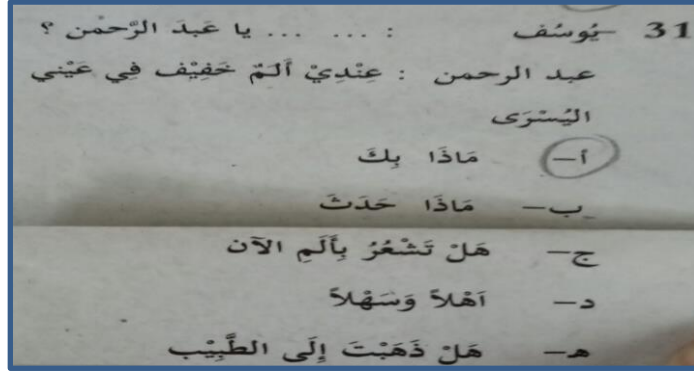 31 - يُوسُف : ... ... يا عَبدَ الرَّحْمٰن ؟
عبد الرحمن : عِنْدِيْ أَلَمٌ خَفِيْف فِي عَيْنِي
اليُسْرَى
أ – مَاذَا بِكَ
ب – مَاذَا حَدَثَ
ج – هَلْ تَشْعُرُ بِأَلَمِ الآن
د – اَهْلاً وَسَهْلاً
هـ – هَلْ ذَهَبْتَ إِلَى الطَّبِيْب